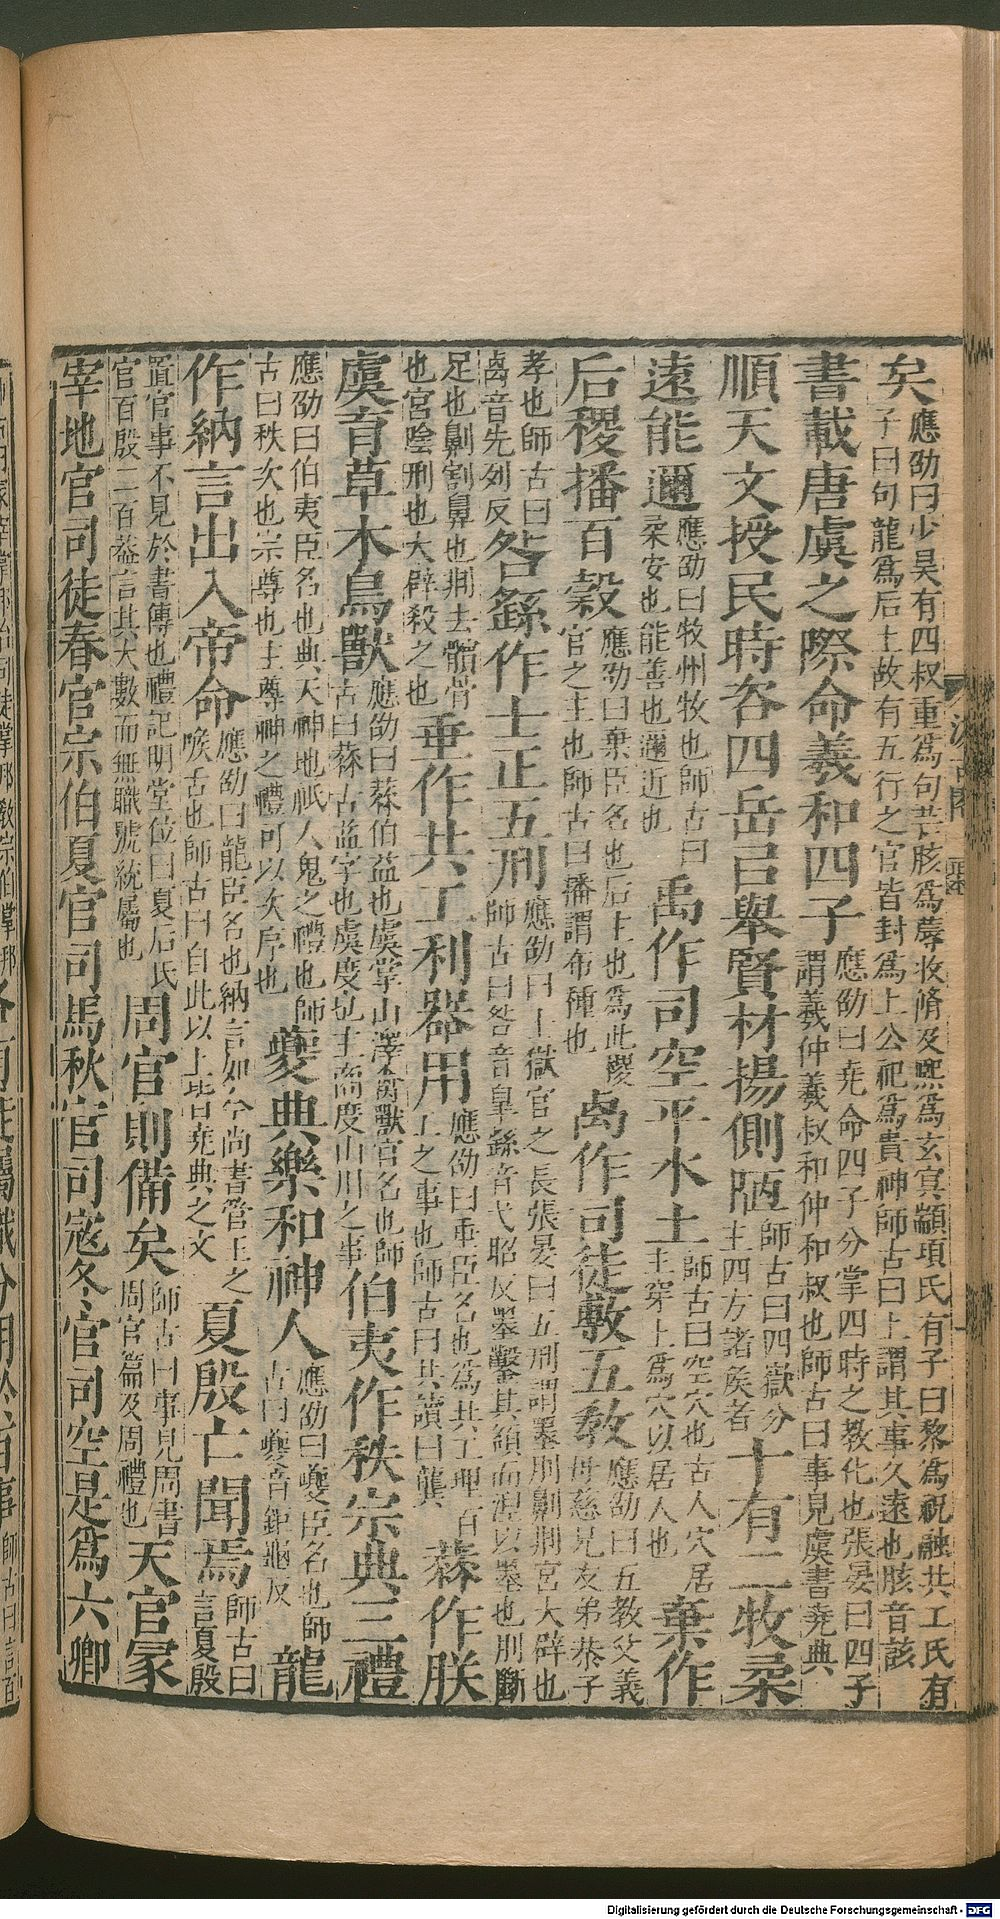 矣應劭曰少昊有四叔重爲句芒胲爲蓐收脩及熙爲玄冥顓頊氏有子曰黎爲祝融共工氏有
子曰句龍爲后土故有五行之官皆封爲上公祀爲貴神師古曰上謂其事久遠也胲音該
書載唐虞之際命羲和四子應劭曰堯命四子分掌四時之教化也張晏曰四子
謂羲仲羲叔和仲和叔也師古曰事見虞書堯典
順天文授民時咨四岳㠯舉賢材揚側陋師古曰四嶽分
主四方諸侯者十有二牧柔
遠能邇應劭曰牧州牧也師古曰
柔安也能善也邇近也禹作司空平水土師古曰空穴也古人穴居
主穿土爲穴以居人也棄作
后稷播百穀應劭曰棄臣名也后主也爲此稷
官之主也師古曰播謂布種也卨作司徒敷五教應劭曰五教父義
母慈兄友弟恭子
孝也師古曰
卨音先列反咎繇作士正五刑應劭曰士獄官之長張晏曰五刑謂墨劓剕宮大辟也
師古曰咎音皋繇音弋昭反墨鑿其頟而涅以墨也刖斷
足也劓割鼻也剕去髕骨
也宮陰刑也大辟殺之也垂作共工利器用應劭曰垂臣名也爲共工理百
工之事也師古曰共讀曰龔𦳣作朕
虞育草木鳥獸應劭曰𦳣伯益也虞掌山澤禽獸官名也師
古曰𦳣古益字也虞度也主商度山川之事伯夷作秩宗典三禮
應劭曰伯夷臣名也典天神地祇人鬼之禮也師
古曰秩次也宗尊也主尊神之禮可以次序也夔典樂和神人應劭曰夔臣名也師
古曰夔音鉅龜反龍
作納言出入帝命應劭曰龍臣名也納言如今尚書管王之
喉舌也師古曰自此以上皆堯典之文夏殷亡聞焉師古曰
言夏殷
置官事不見於書傳也禮記明堂位曰夏后氏
官百殷二百蓋言其大數而無職號統屬也周官則備矣師古曰事見周書
周官篇及周禮也天官冢
宰地官司徒春官宗伯夏官司馬秋官司寇冬官司空是爲六卿
Digitalisierung gefördert durch die Deutsche Forschungsgemeinschaft - DFG